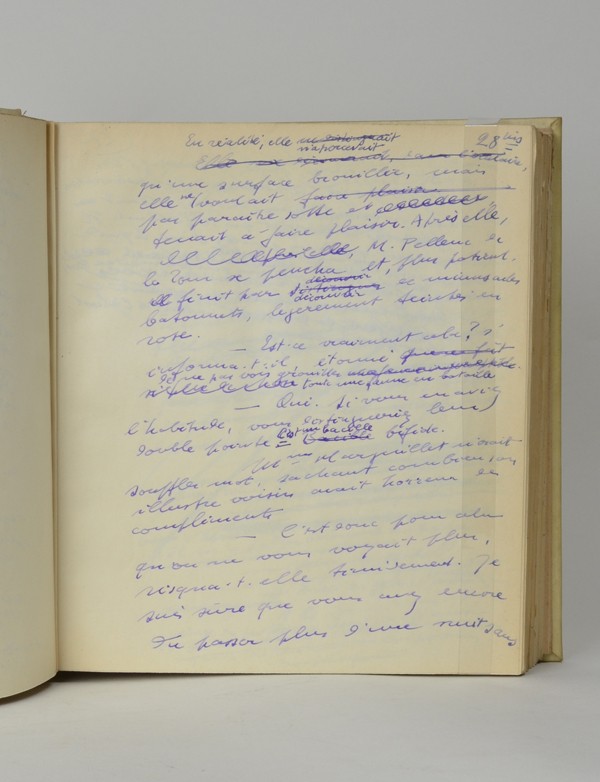 En réalité, elle 28 bis
n'apercevait
qu'une surface brouillée, mais
elle ne voulait faire plaisir
pas paraître sotte et
tenait à faire plaisir. Après elle,
M. Pellenc de
la Tour se pencha et, plus patient,
il finit par découvrir de minuscules
bâtonnets, légèrement teintés en
rose.
— Est-ce vraiment cela ? s'
informa-t-il, étonné.
toute une faune en bataille.
— Oui. Si vous en aviez
l'habitude, vous distingueriez leur
double pointe. bifide.
Mme Marguillet n'osait
souffler mot, sachant combien son
illustre voisin avait horreur de
compliments.
— C'est donc pour cela
qu'on ne vous voyait plus,
risqua-t-elle timidement. Je
suis sûre que vous avez encore
dû passer plus d'une nuit sans